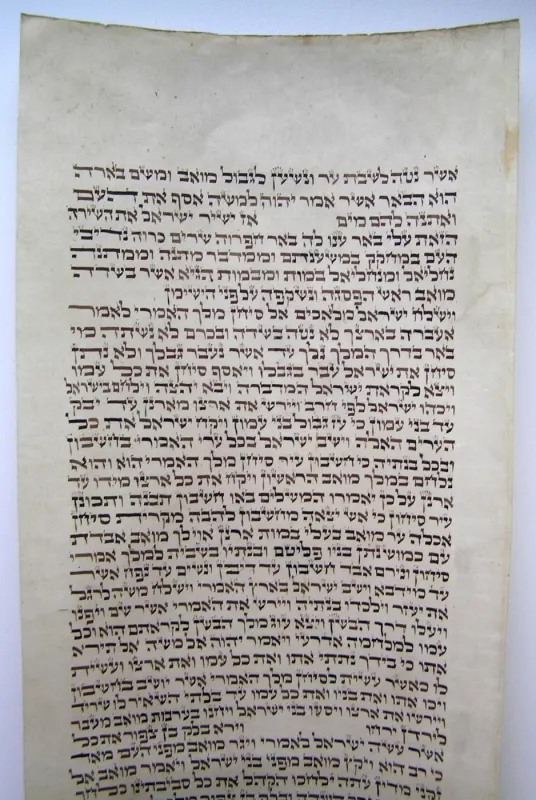 אשר נטה לשבת ער ונשען לגבול מואב ומשם בארה
הוא הבאר אשר אמר יהוה למשה אסף את העם
ואתנה להם מים אז ישיר ישראל את השירה
הזאת עלי באר ענו לה באר חפרוה שרים כרוה נדיבי
העם במחקק במשענתם וממדבר מתנה וממתנה
נחליאל ומנחליאל במות ומבמות הגיא אשר בשדה
מואב ראש הפסגה ונשקפה על פני הישימן
וישלח ישראל מלאכים אל סיחן מלך האמרי לאמר
אעברה בארצך לא נטה בשדה ובכרם לא נשתה מי
באר בדרך המלך נלך עד אשר נעבר גבלך ולא נתן
סיחן את ישראל עבר בגבלו ויאסף סיחן את כל עמו
ויצא לקראת ישראל המדברה ויבא יהצה וילחם בישראל
ויכהו ישראל לפי חרב ויירש את ארצו מארנן עד יבק
עד בני עמון כי עז גבול בני עמון ויקח ישראל את כל
הערים האלה וישב ישראל בכל ערי האמרי בחשבון
ובכל בנתיה כי חשבון עיר סיחן מלך האמרי הוא והוא
נלחם במלך מואב הראשון ויקח את כל ארצו מידו עד
ארנן על כן יאמרו המשלים באו חשבון תבנה ותכונן
עיר סיחון כי אש יצאה מחשבון להבה מקרית סיחן
אכלה ער מואב בעלי במות ארנן אוי לך מואב אבדת
עם כמוש נתן בניו פליטם ובנתיו בשבית למלך אמרי
סיחון ונירם אבד חשבון עד דיבן ונשים עד נפח אשר
עד מידבא וישב ישראל בארץ האמרי וישלח משה לרגל
את יעזר וילכדו בנתיה ויירש את האמרי אשר שם ויפנו
ויעלו דרך הבשן ויצא עוג מלך הבשן לקראתם הוא וכל
עמו למלחמה אדרעי ויאמר יהוה אל משה אל תירא
אתו כי בידך נתתי אתו ואת כל עמו ואת ארצו ועשית
לו כאשר עשית לסיחן מלך האמרי אשר יושב בחשבון
ויכו אתו ואת בניו ואת כל עמו עד בלתי השאיר לו שריד
ויירשו את ארצו ויסעו בני ישראל ויחנו בערבות מואב מעבר
לירדן ירחו וירא בלק בן צפור את כל
אשר עשה ישראל לאמרי ויגר מואב מפני העם מאד
כי רב הוא ויקץ מואב מפני בני ישראל ויאמר מואב אל
זקני מדין עתה ילחכו הקהל את כל סביבתינו כלחך